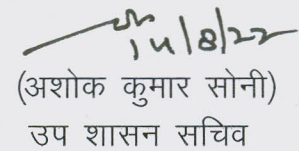 14/8/22
(अशोक कुमार सोनी)
उप शासन सचिव